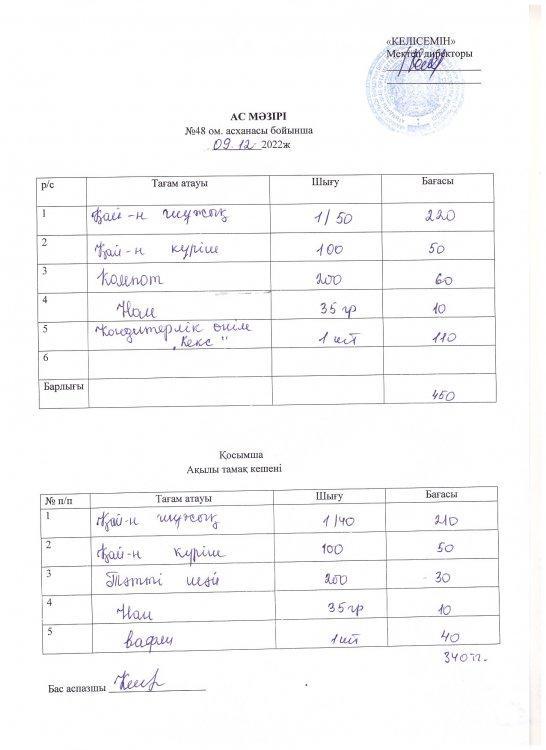 «КЕЛІСЕМІН»
Мектеп директоры
АС МӘЗІРІ
№48 ом. асханасы бойынша
09.12 2022ж
р/с Тағам атауы Шығу Бағасы
1 Қай-н шұжық 1/50 220
2 Қай-н күріш 100 50
3 Компот 200 60
4 Нан 35 гр 10
5 Кондитерлік өнім
„Кекс" 1 шт 110
6
Барлығы 450
Қосымша
Ақылы тамақ кешені
№ п/п Тағам атауы Шығу Бағасы
1 Қай-н шұжық 1/40 210
2 Қай-н күріш 100 50
3 Тәтті шәй 200 - 30
4 Нан 35 гр 10
5 вафли 1 шт 40
340тг.
Бас аспазшы